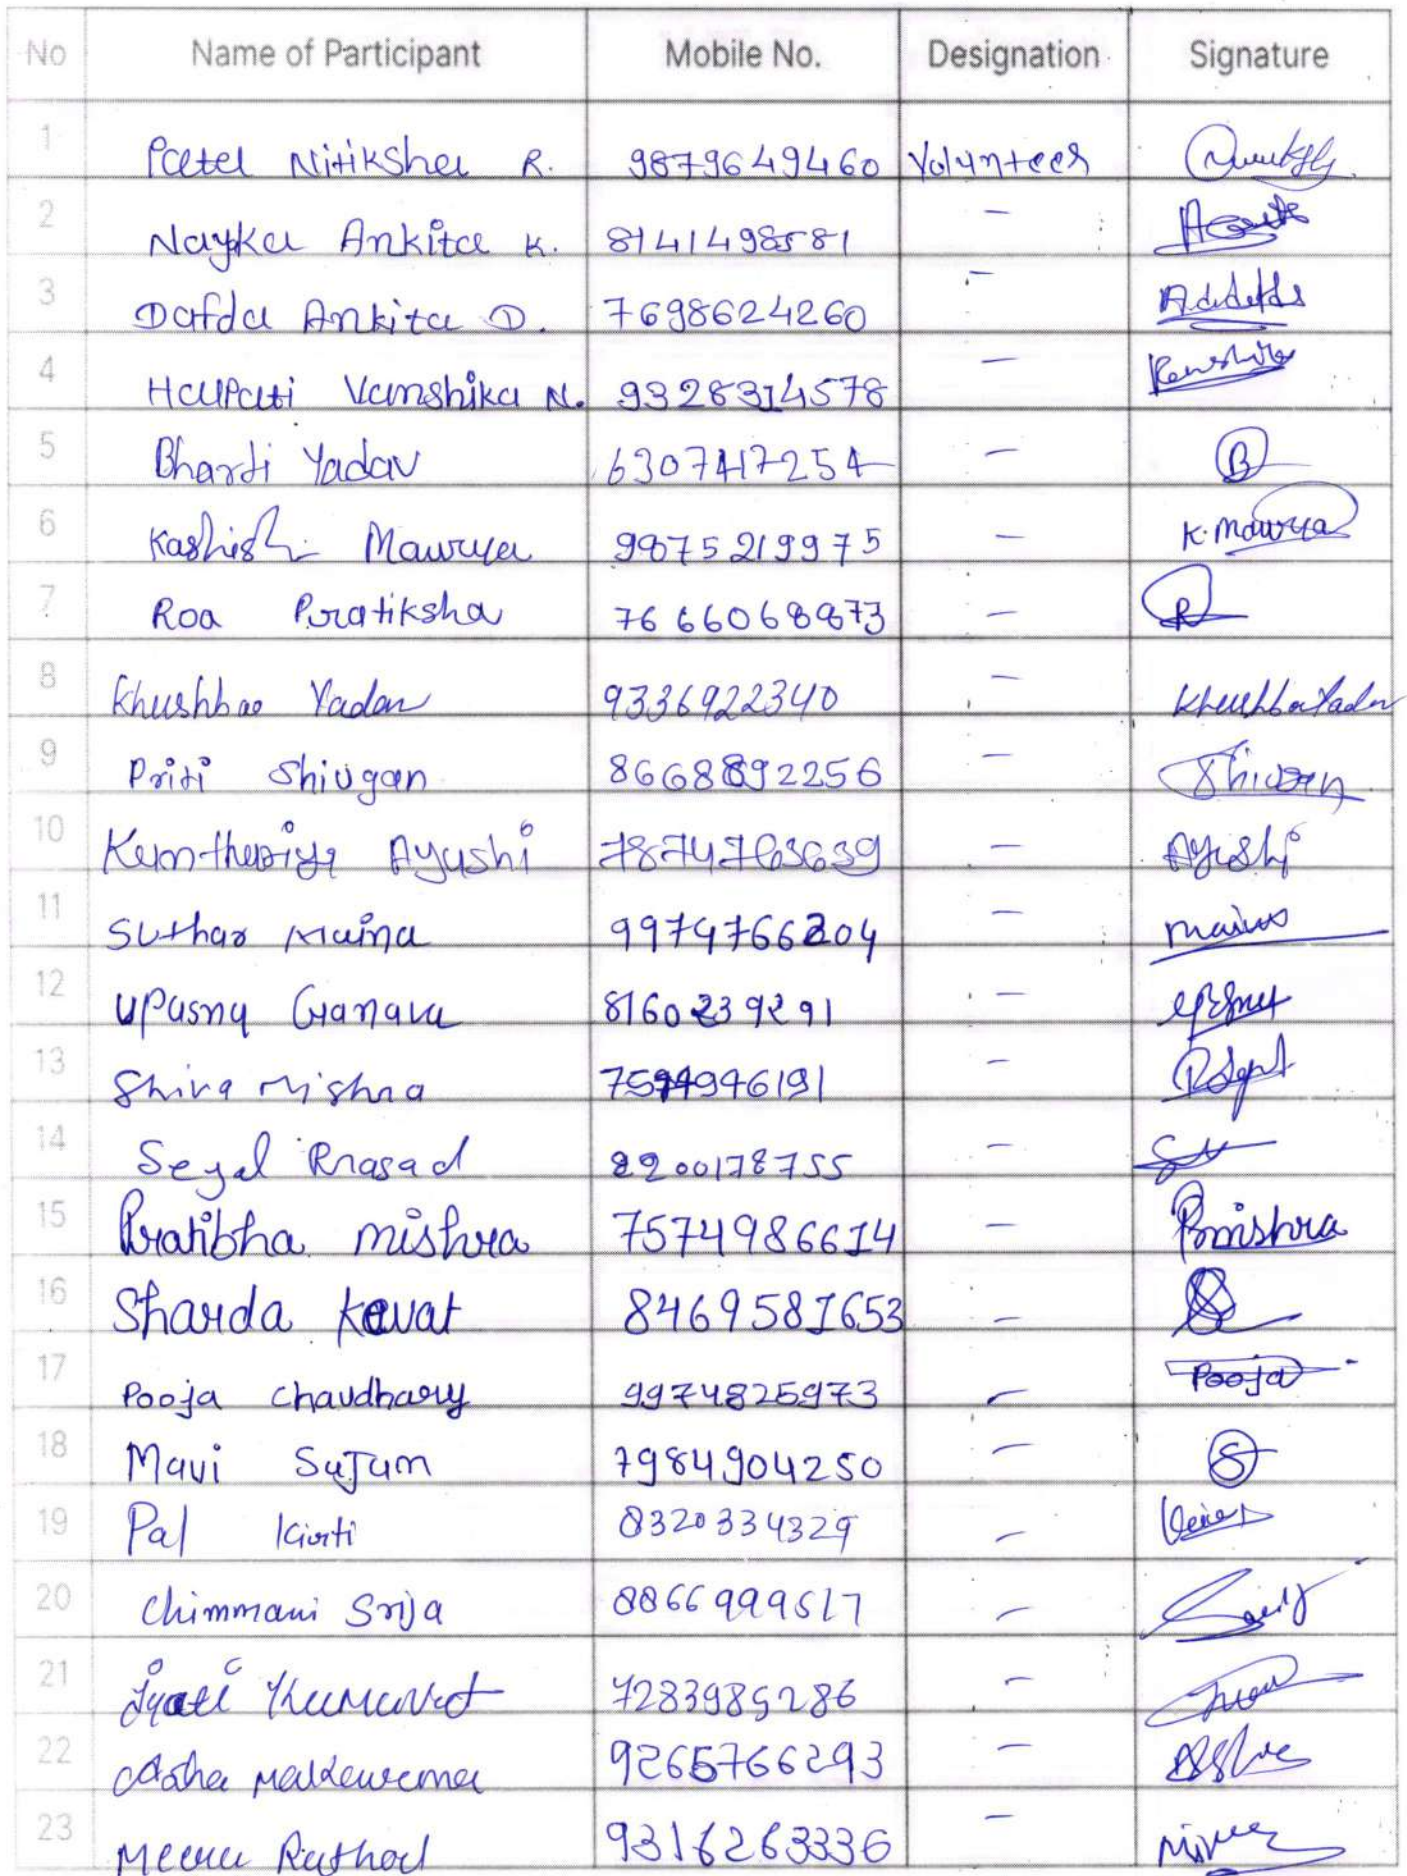 No Name of Participant Mobile No. Designation Signature
1 Patel Nitiksha R. 9879649460 Volunteer
2 Nayka Ankita K. 8141498581 -
3 Dafda Ankita D. 7698624260 -
4 Halpati Vanshika N. 9328314578 -
5 Bharti Yadav 6307417254 - B
6 Kashish Maurya 9875219975 - K. Maurya
7 Roa Pratiksha 7666068873 - R
8 Khushboo Yadav 9336922340 - Khushboo Yadav
9 Priti Shivgan 8668892256 - Shivgan
10 Ayushi 7874763639 - Ayushi
11 Suthar Maina 9974766204 - Maina
12 Upasna Ganava 8160239291 -
13 Shiva Mishra -
14 Sejal Prasad 9200178755 -
15 Pratibha mishra 7574986614 - Pmishra
16 Sharda kevat 8469581653 -
17 Pooja Chaudhary 9974825973 - Pooja
18 Mavi Sujan 7984904250 - S
19 Pal Kirti 8320334329 -
20 Chimmani Srija 8866999517 -
21 Jyoti Kumavat 7283985286 -
22 Asha Makwana 9265766293 -
23 Meena Rathod 9316263336 -